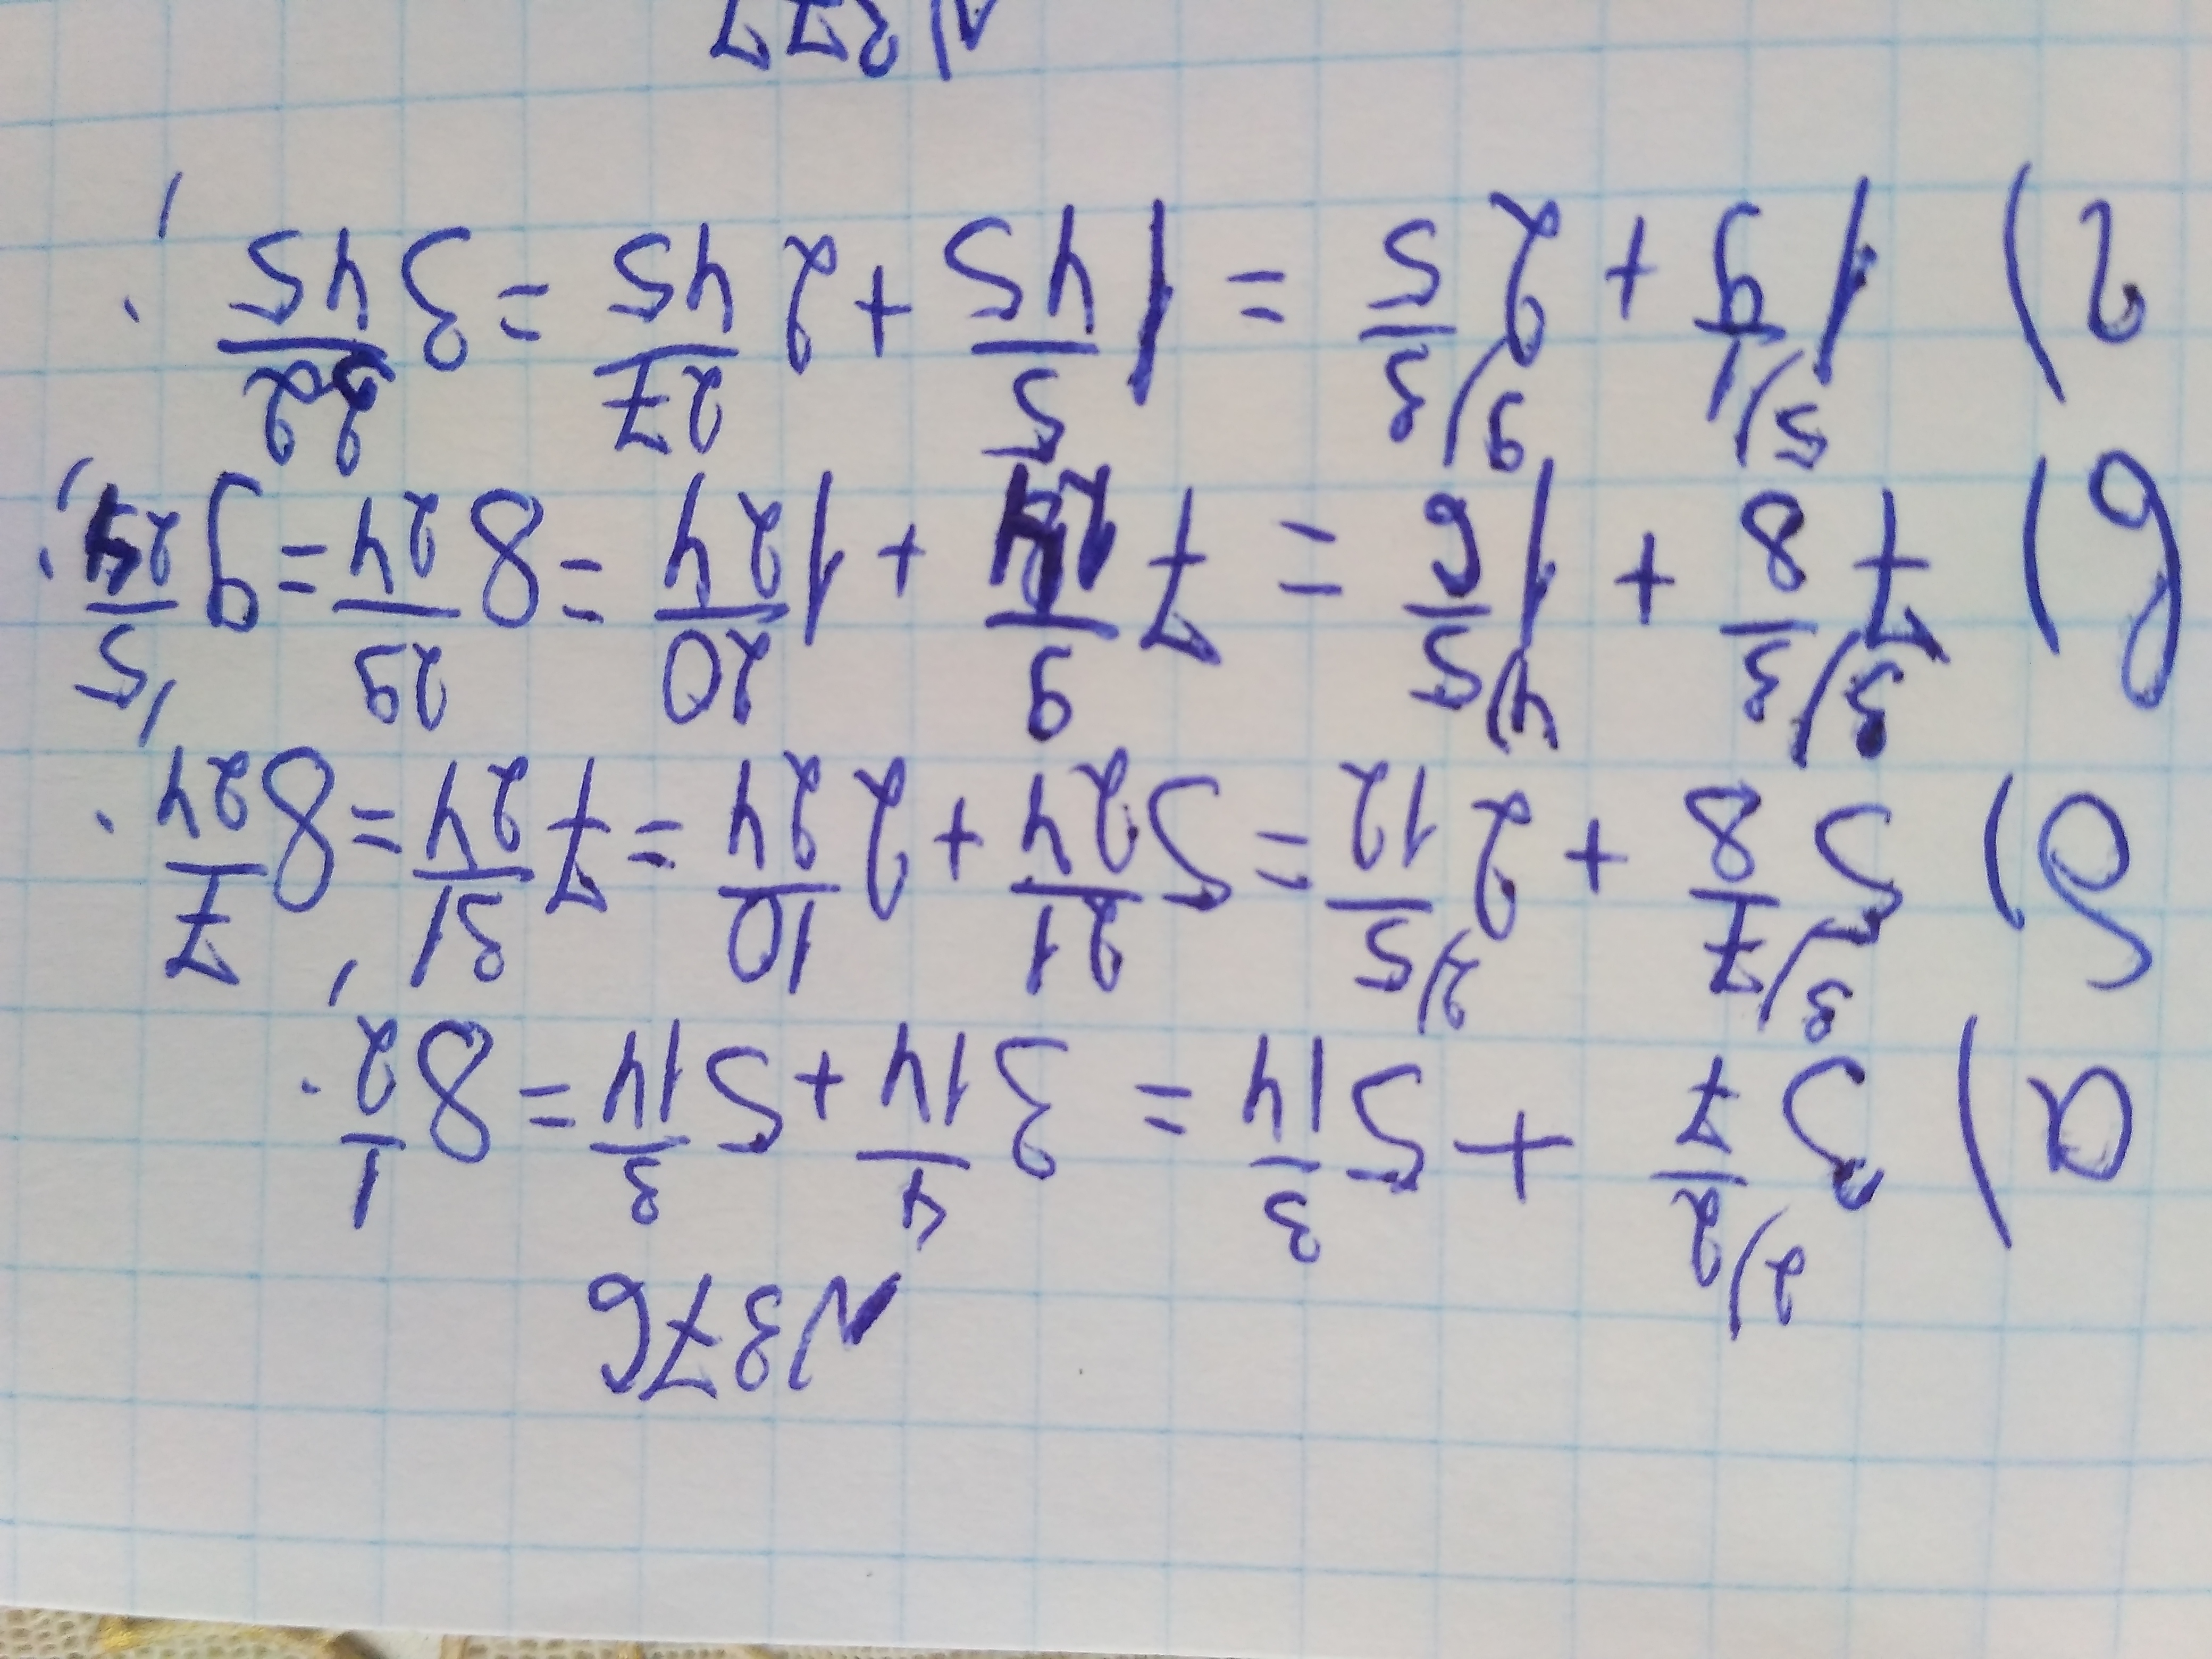 N376
а) 3 ²⁾2/7 + 5 3/14 = 3 4/14 + 5 3/14 = 8 1/2.
б) 5 ³⁾7/8 + 2 ²⁾5/12 = 5 21/24 + 2 10/24 = 7 31/24 = 8 7/24.
в) 7 ³⁾3/8 + 1 ⁴⁾5/6 = 7 9/24 + 1 20/24 = 8 29/24 = 9 5/24;
г) 1 ⁵⁾1/9 + 2 ⁹⁾3/5 = 1 5/45 + 2 27/45 = 3 32/45;
N377